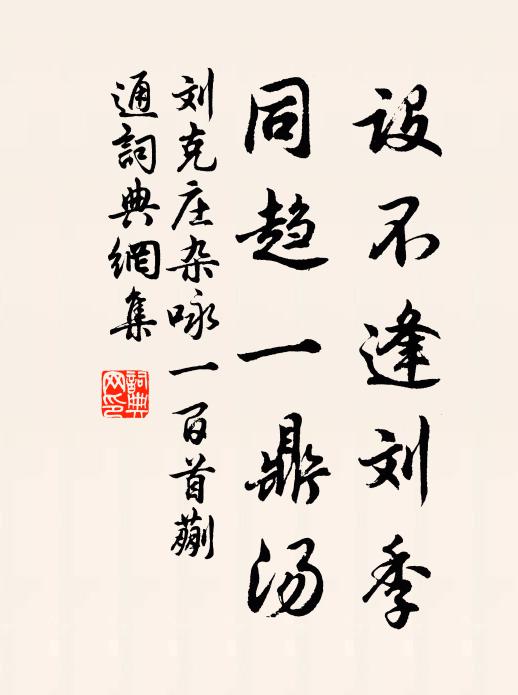 设不逢刘季
同趋一鼎汤
刘克庄杂咏一百首蒯
通词典網集
詞典
网印